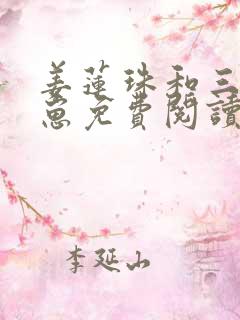 姜蓮珠和三
崽免費閱讀
李延山